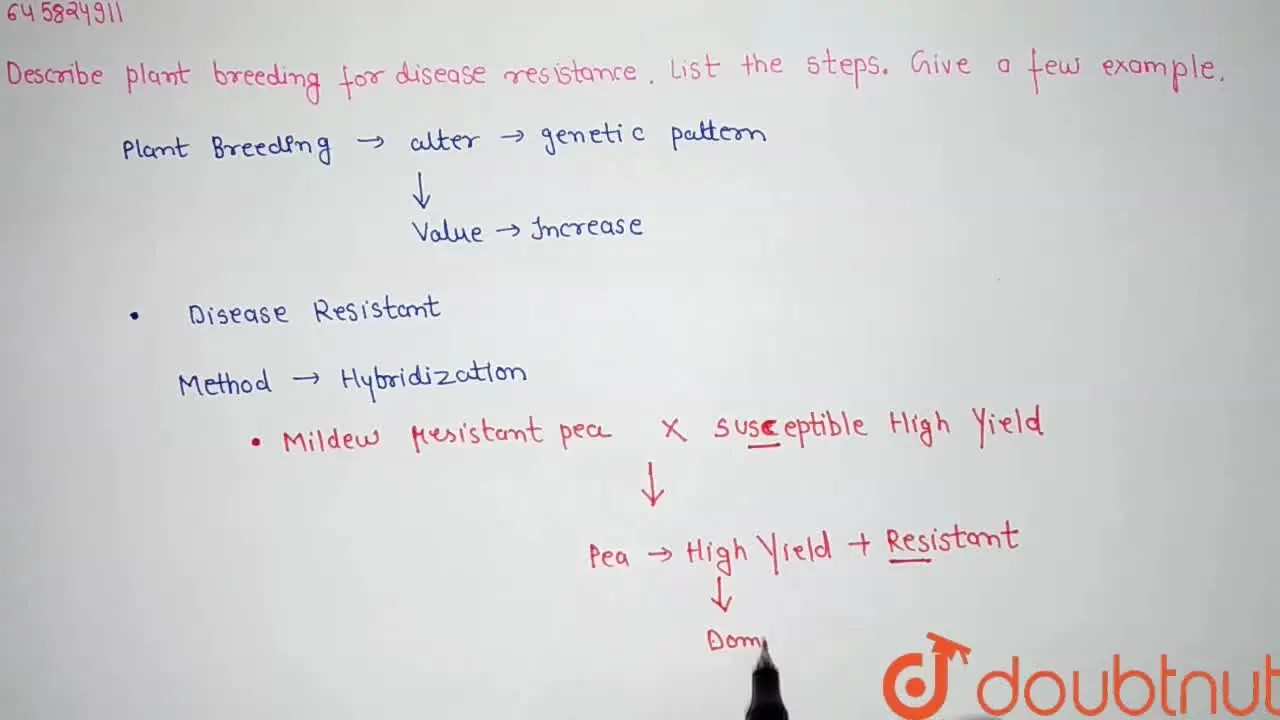 645824911
Describe plant breeding for disease resistance. List the steps. Give a few example.
Plant Breeding → alter → genetic pattern
↓
Value → Increase
• Disease Resistant
Method → Hybridization
• Mildew resistant pea X susceptible High Yield
↓
Pea → High Yield + Resistant
↓
Dom
doubtnut